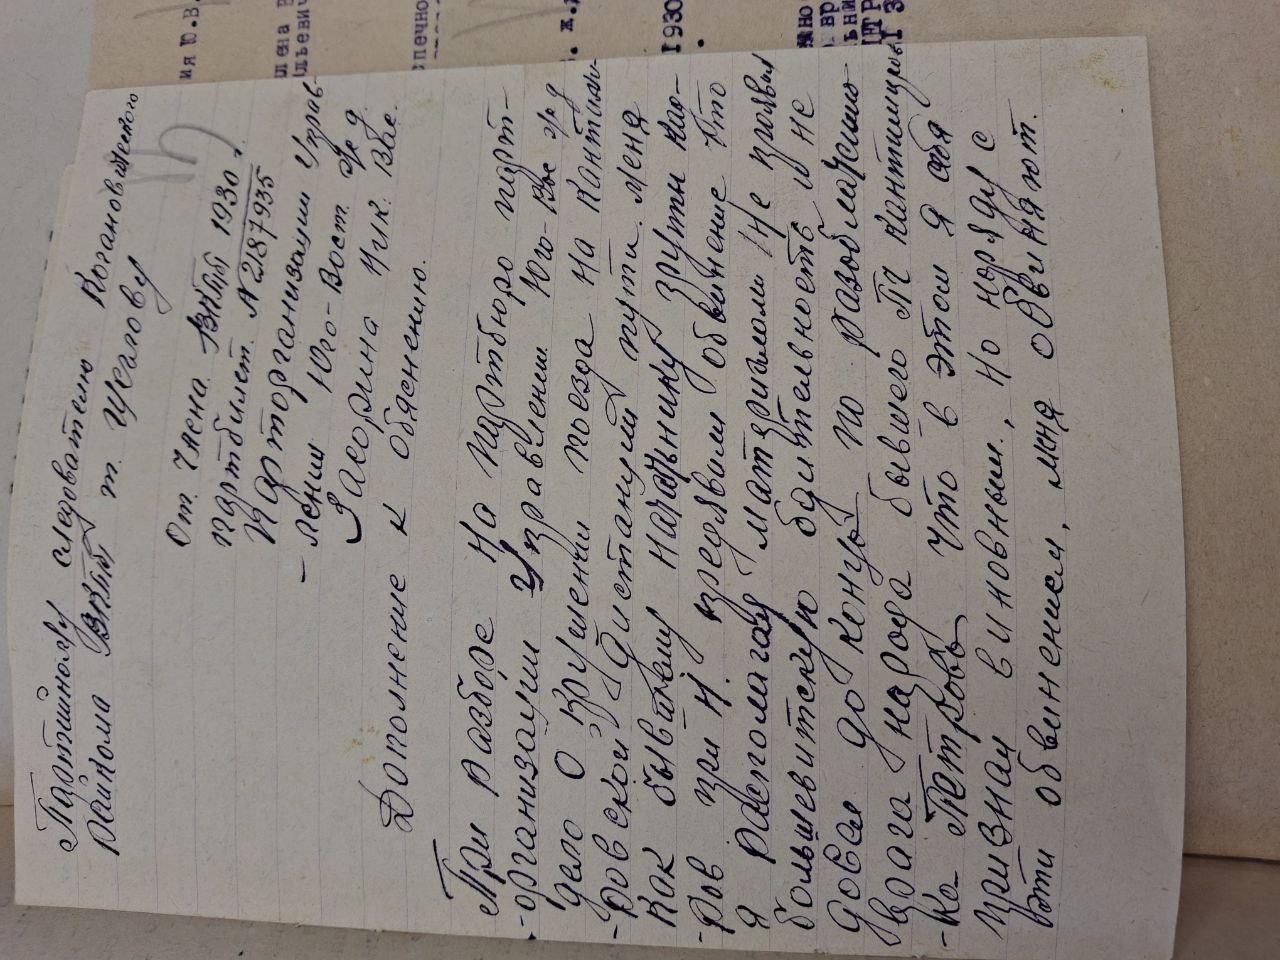 Партийному следователю Кагановического
Райкома ВКПб т. Щеглову
От члена ВКПб 1930 г.
партбилет. N 2187935
Парторганизации Управ-
-лении Юго-Вост. ж д
Заворина Ник. Вас.
Дополнение к обяснению.
При разборе на партбюро парт-
-организации Управлении Юго-Вос ж д
дело о крушении поезда на Кантими-
-ровской дистанций пути. меня
как бывшему начальнику группы кад-
-ров при Н. предявили обвинение что
я располагая матэриалом не проявил
большевитскую бдительность и не
довел до конца по разоблачению
врага народа бывшего ПЧ Кантимиров
-ка Петрова что в этом я себя
признал виновным, но наряду с
эти обвинением, меня обвиняют.
ия Ю.В.
лена В
льевич
спечно
ж.д
1930